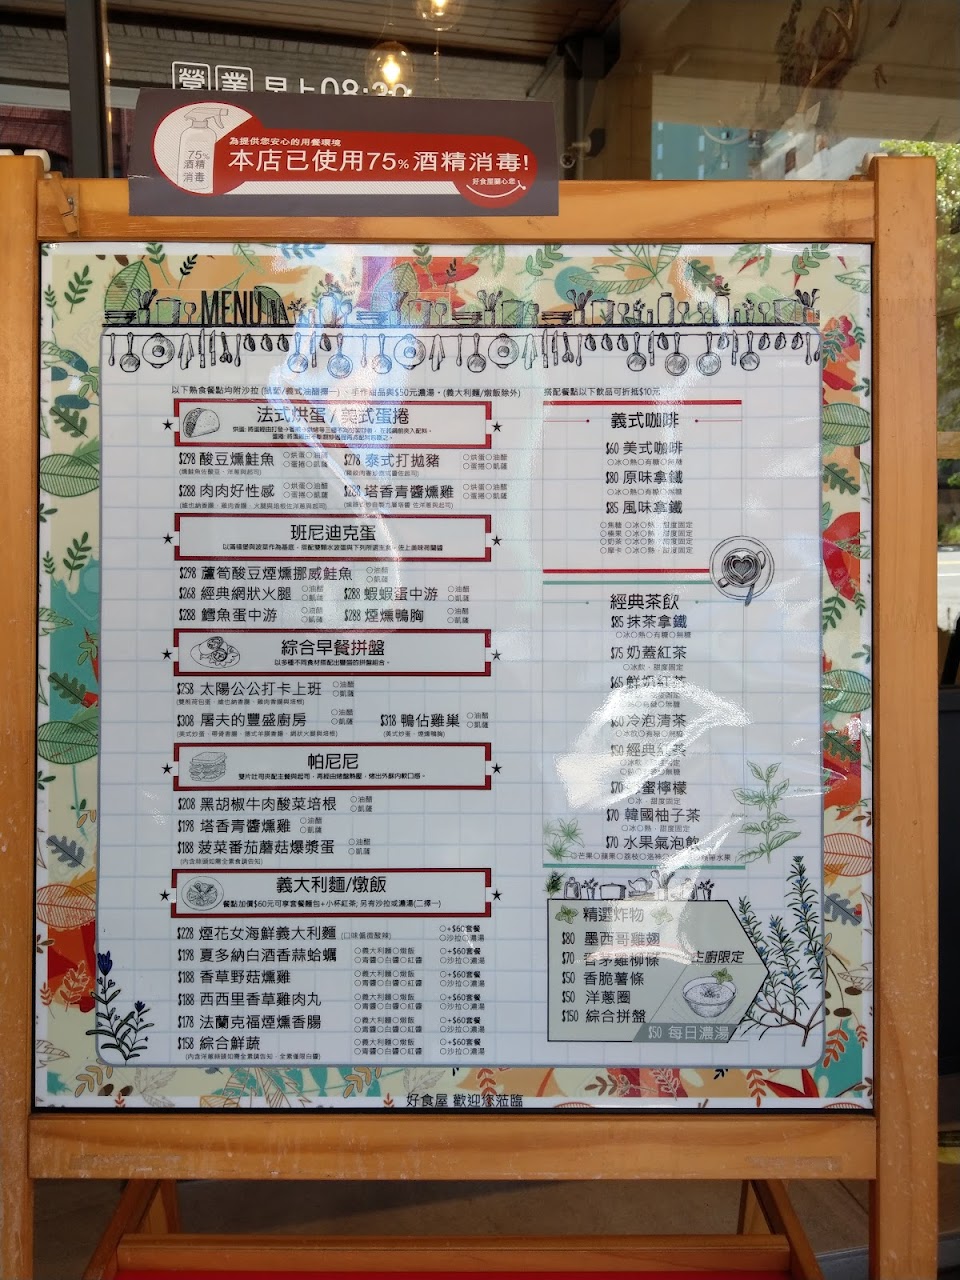 營業 早上08:30
為提供您安心的用餐環境
75%
酒精
消毒
本店已使用75%酒精消毒!
好食屋關心您
MENU
以下熱食餐點均附沙拉
手作甜品與$50元濃湯。(義大利麵/燉飯除外)
法式烘蛋/美式蛋捲
$298 酸豆燻鮭魚 ○烘蛋○油醋 ○蛋捲○凱薩
$278 泰式打拋豬 ○烘蛋○油醋 ○蛋捲○凱薩
$288 肉肉好性感 ○烘蛋○油醋 ○蛋捲○凱薩
$288 塔香青醬燻雞 ○烘蛋○油醋 ○蛋捲○凱薩
班尼迪克蛋
$298 蘆筍酸豆煙燻挪威鮭魚 ○油醋 ○凱薩
$268 經典網狀火腿 ○油醋 ○凱薩
$288 蝦蝦蛋中游 ○油醋 ○凱薩
$288 鱈魚蛋中游 ○油醋 ○凱薩
$288 煙燻鴨胸 ○油醋 ○凱薩
綜合早餐拼盤
以多種不同食材搭配出豐盛的拼盤組合。
$258 太陽公公打卡上班 ○油醋 ○凱薩
$308 屠夫的豐盛廚房 ○油醋 ○凱薩
$318 鴨佔雞巢 ○油醋 ○凱薩
(美式炒蛋、煙燻鴨胸)
帕尼尼
$208 黑胡椒牛肉酸菜培根 ○油醋 ○凱薩
$198 塔香青醬燻雞 ○油醋 ○凱薩
$188 菠菜番茄蘑菇爆漿蛋 ○油醋 ○凱薩
義大利麵/燉飯
餐點加價$60元可享套餐麵包+小杯紅茶; 另有沙拉或濃湯(二擇一)
$228 煙花女海鮮義大利麵 (口味偏微酸辣) ○+$60套餐 ○沙拉○濃湯
$198 夏多納白酒香蒜蛤蠣 ○義大利麵○燉飯 ○青醬○白醬○紅醬 ○+$60套餐 ○沙拉○濃湯
$188 香草野菇燻雞 ○義大利麵○燉飯 ○青醬○白醬○紅醬 ○+$60套餐 ○沙拉○濃湯
$188 西西里香草雞肉丸 ○義大利麵○燉飯 ○青醬○白醬○紅醬 ○+$60套餐 ○沙拉○濃湯
$178 法蘭克福煙燻香腸 ○義大利麵○燉飯 ○青醬○白醬○紅醬 ○+$60套餐 ○沙拉○濃湯
$158 綜合鮮蔬 ○義大利麵○燉飯 ○青醬○白醬○紅醬 ○+$60套餐 ○沙拉○濃湯
搭配餐點以下飲品可折抵$10元
義式咖啡
$60 美式咖啡
○冰○熱○有糖○無糖
$80 原味拿鐵
○冰○熱○有糖○無糖
$85 風味拿鐵
○焦糖 ○冰○熱、甜度固定
○榛果 ○冰○熱、甜度固定
○奶茶 ○冰○熱、甜度固定
○摩卡 ○冰○熱、甜度固定
經典茶飲
$85 抹茶拿鐵
○冰○熱○有糖○無糖
$75 奶蓋紅茶
○冰飲、甜度固定
$65 鮮奶紅茶
冷泡清茶
經典紅茶
蜜檸檬
○冰、甜度固定
$70 韓國柚子茶
○冰○熱、甜度固定
$70 水果氣泡飲
精選炸物
$80 墨西哥雞翅
$70 香茅雞柳條
$50 香脆薯條
$50 洋蔥圈
$150 綜合拼盤
主廚限定
$50 每日濃湯
好食屋 歡迎您蒞臨